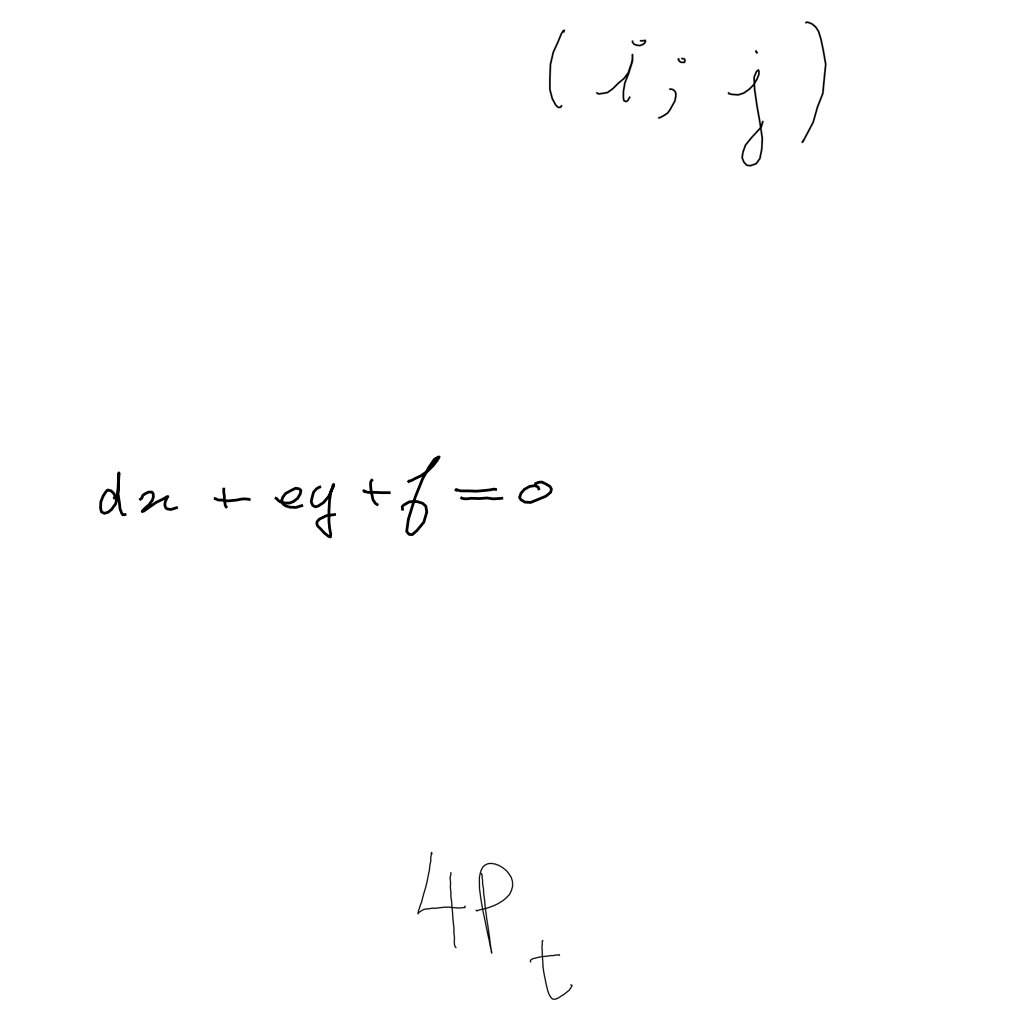 (i; j)
dx + ey + f = 0
4P_t